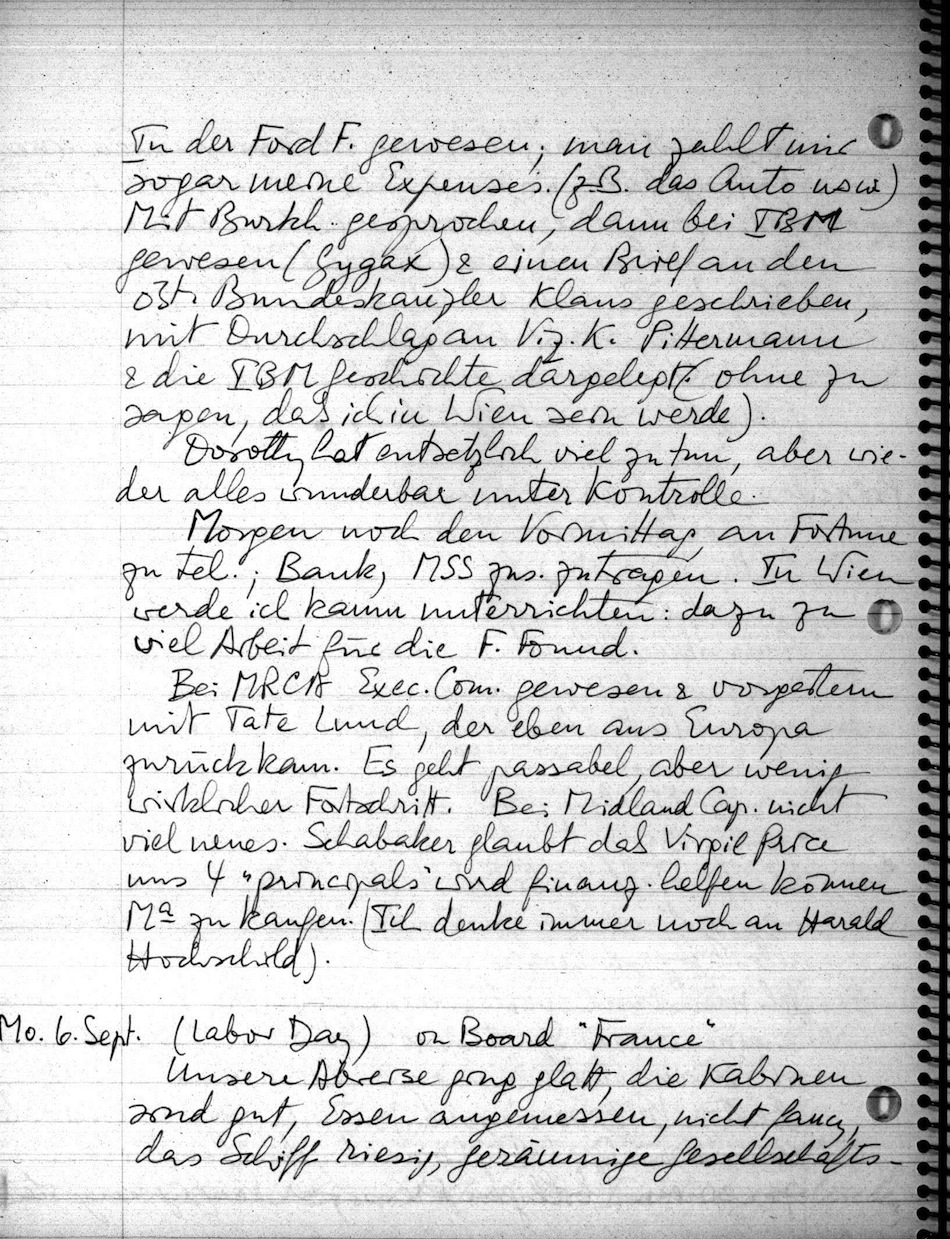 In der Ford F. gewesen; man zahlt mir
sogar meine Expenses. (z.B. das Auto usw)
Mit Burkh. gesprochen, dann bei IBM
gewesen (Gygax) & einen Brief an den
öst. Bundeskanzler Klaus geschrieben,
mit Durchschlag an Viz. K. Pittermann
& die IBM Geschichte dargelegt (ohne zu
sagen, das ich in Wien sein werde).
Dorothy hat entsetzlich viel zu tun, aber wie-
der alles wunderbar unter Kontrolle.
Morgen noch den Vormittag an Fortune
zu tel.; Bank, MSS zus. zutragen. In Wien
werde ich kaum unterrichten: dazu zu
viel Arbeit für die F. Found.
Bei MRCA Exec. Com. gewesen & vorgestern
mit Tate Lund, der eben aus Europa
zurückkam. Es geht passabel, aber wenig
wirklicher Fortschritt. Bei Midland Cap. nicht
viel neues. Schabaker glaubt das Virgil Price
uns 4 "principals" wird finanz. helfen können
Ma zu kaufen. (Ich denke immer noch an Harald
Hochschild).
Mo. 6. Sept. (Labor Day) on Board "France"
Unsere Abreise ging glatt, die Kabinen
sind gut, Essen angemessen, nicht fancy,
das Schiff riesig, geräumige Gesellschafts-